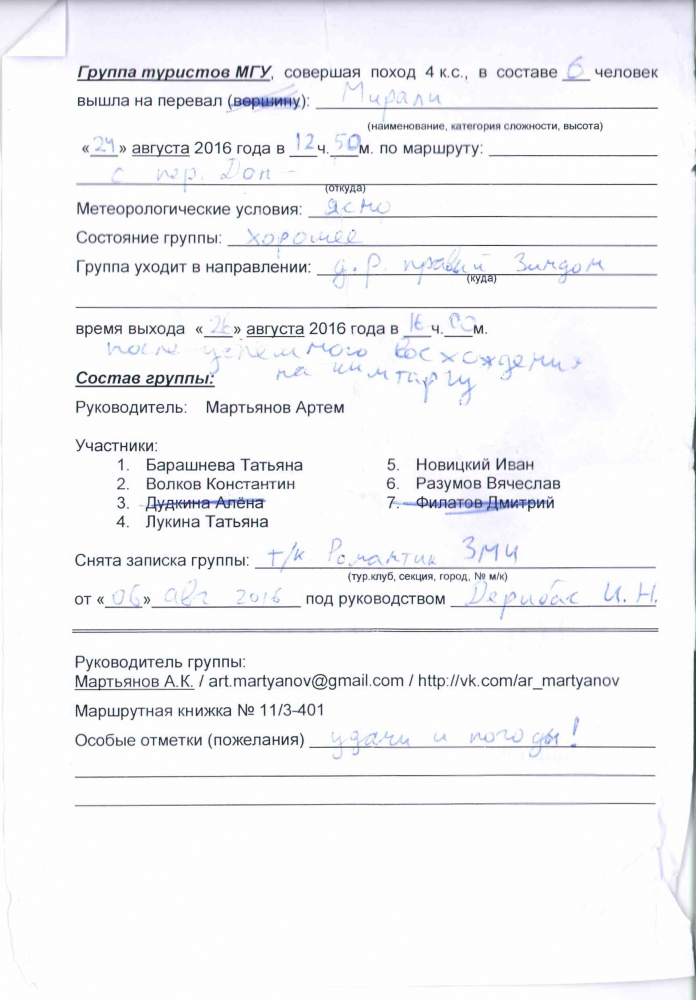 Группа туристов МГУ, совершая поход 4 к.с., в составе 6 человек
вышла на перевал (вершину): Мирали
(наименование, категория сложности, высота)
«24» августа 2016 года в 12 ч. 50 м. по маршруту:
с пер. Доп –
(откуда)
Метеорологические условия: ясно
Состояние группы: хорошее
Группа уходит в направлении: д.р. правый Зиндон
(куда)
время выхода «26» августа 2016 года в 16 ч. 00 м.
после успешного восхождения
на Чимтаргу
Состав группы:
Руководитель: Мартьянов Артем
Участники:
1. Барашнева Татьяна
2. Волков Константин
3. Дудкина Алёна
4. Лукина Татьяна
5. Новицкий Иван
6. Разумов Вячеслав
7. Филатов Дмитрий
Снята записка группы: т/к Романтик ЗМИ
(тур.клуб, секция, город, № м/к)
от «06» авг 2016 под руководством Дерибас И. Н.
Руководитель группы:
Мартьянов А.К. / art.martyanov@gmail.com / http://vk.com/ar_martyanov
Маршрутная книжка № 11/3-401
Особые отметки (пожелания) удачи и погоды!